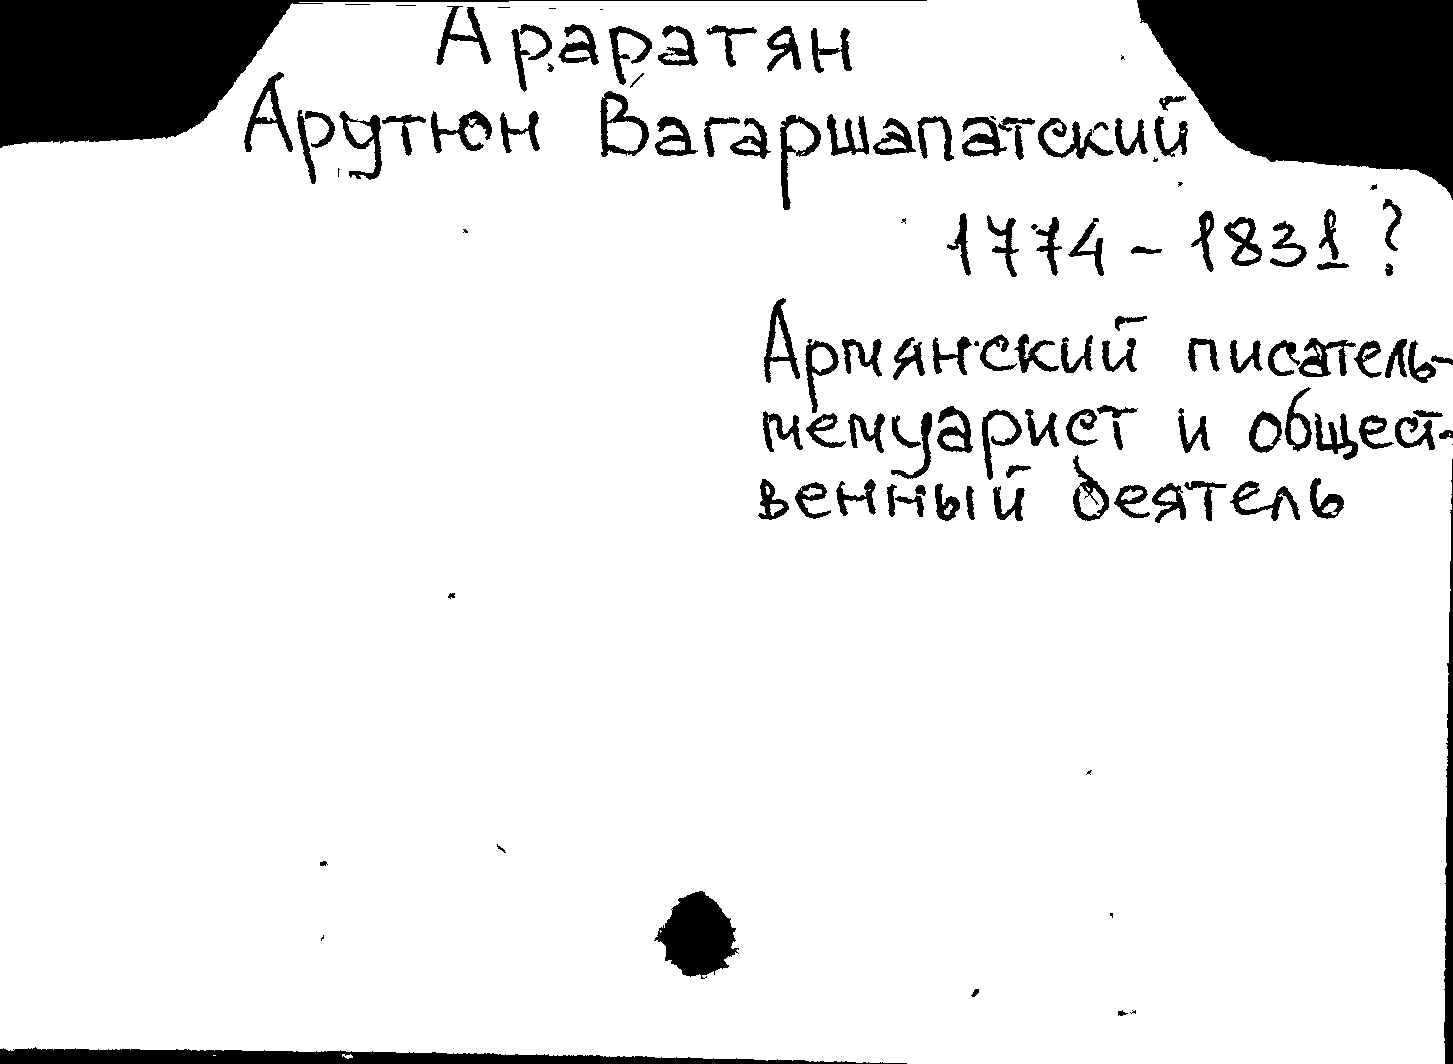 Араратян
Арутюн Вагаршапатский
1774 - 1831 ?
Армянский писатель-
мемуарист и общест-
венный деятель